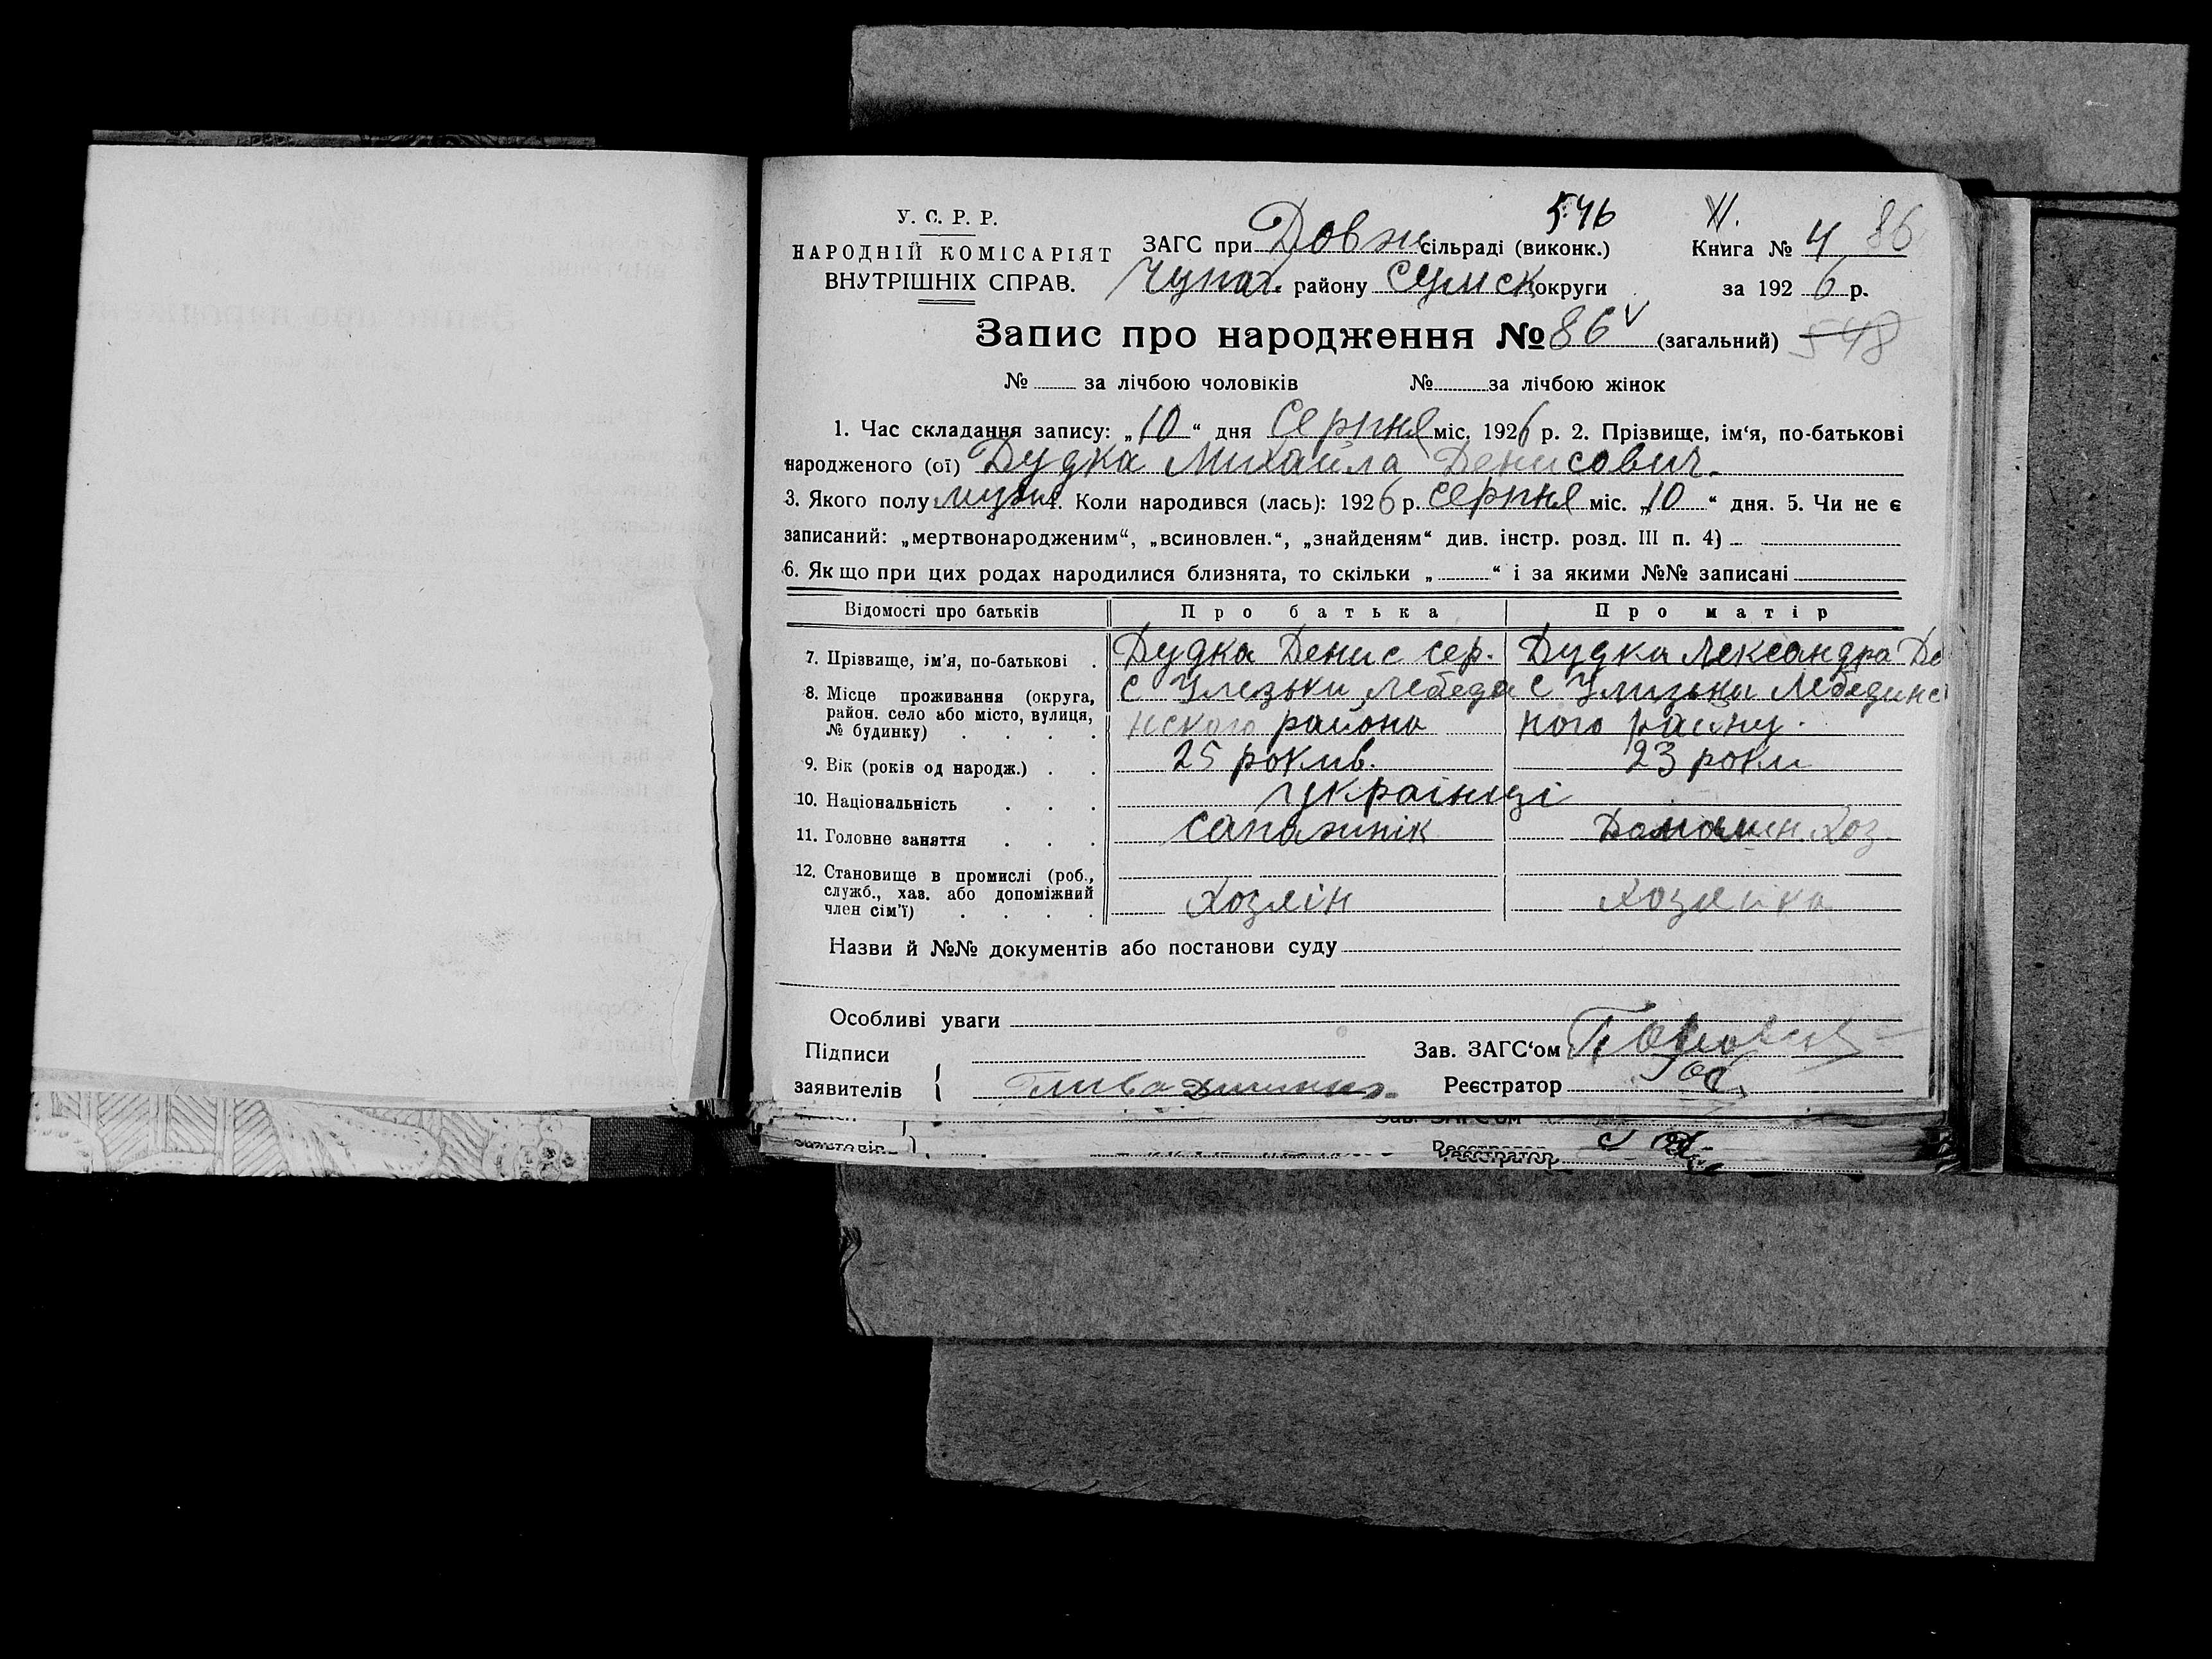 546 VI. 86
У. С. Р. Р.
НАРОДНІЙ КОМІСАРІЯТ
ВНУТРІШНІХ СПРАВ.
ЗАГС при Довж сільраді (виконк.) Книга № 4
Чупах. району Сумск округи за 1926 р.
Запис про народження № 86 (загальний) 548
№ за лічбою чоловіків № за лічбою жінок
1. Час складання запису: „10“ дня Серпня міс. 1926 р. 2. Прізвище, ім‘я, по-батькові
народженого (ої) Дудка Михайла Денисович.
3. Якого полу муж 4. Коли народився (лась): 1926 р. серпня міс. „10“ дня. 5. Чи не є
записаний: „мертвонародженим“, „всиновлен.“, „знайденям“ див. інстр. розд. III п. 4)
6. Якщо при цих родах народилися близнята, то скільки „ “ і за якими №№ записані
Відомості про батьків Про батька Про матір
7. Прізвище, ім'я, по-батькові Дудка Денис сер. Дудка Лександра
8. Місце проживання (округа, район. село або місто, вулиця, № будинку)
9. Вік (років од народж.) 25 рокив. 23 роки
10. Національність украінці
11. Головне заняття сапажнік Домашн. Хоз.
12. Становище в промислі (роб., служб., хаз. або допоміжний член сім'ї) Хозяін Хозяйка
Назви й №№ документів або постанови суду
Особливі уваги
Підписи
заявителів
Зав. ЗАГС‘ом
Реєстратор
Зав. ЗАГС'ом
Реєстратор